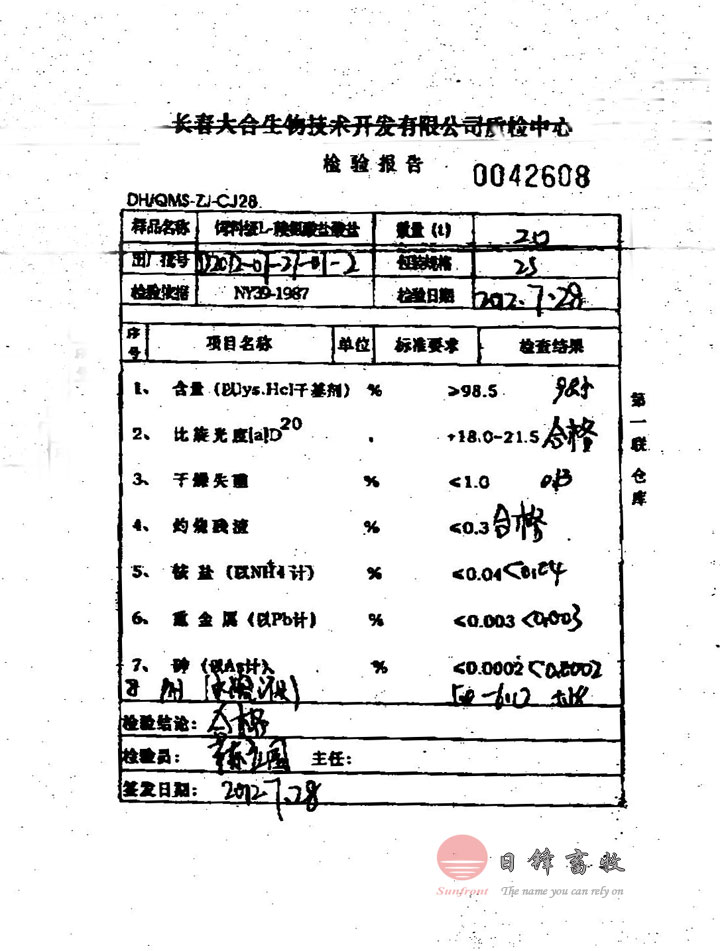 长春大合生物技术开发有限公司质检中心
检验报告 0042608
DH/QMS-ZJ-CJ28
样品名称 饲料级L-赖氨酸盐酸盐 数量（t） 20
出厂批号 包装规格 25
检验依据 NY39-1987 检验日期 2012.7.28
序号 项目名称 单位 标准要求 检查结果
1、 含量（以Lys.Hcl干基剂） % ≥98.5 98.5
2、 比旋光度[a]D20 +18.0-21.5 合格
3、 干燥失重 % ≤1.0 0.13
4、 灼烧残渣 % ≤0.3 合格
5、 铵盐（以NH4计） % ≤0.04 <0.04
6、 重金属（以Pb计） % ≤0.003 <0.003
7、 砷（以As计） % ≤0.0002 <0.0002
第一联 仓库
检验结论： 合格
检验员： 主任：
签发日期： 2012.7.28
日锋畜牧
Sunfront The name you can rely on